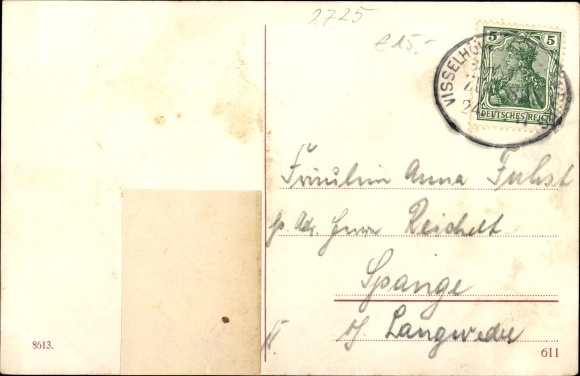 2725
£15.-
5 5
DEUTSCHES REICH
VISSELHÖ
24
Fräulein Anna Fuhst
p. Adr. Herrn Reichelt
Spange
Langwedel
8613.
611